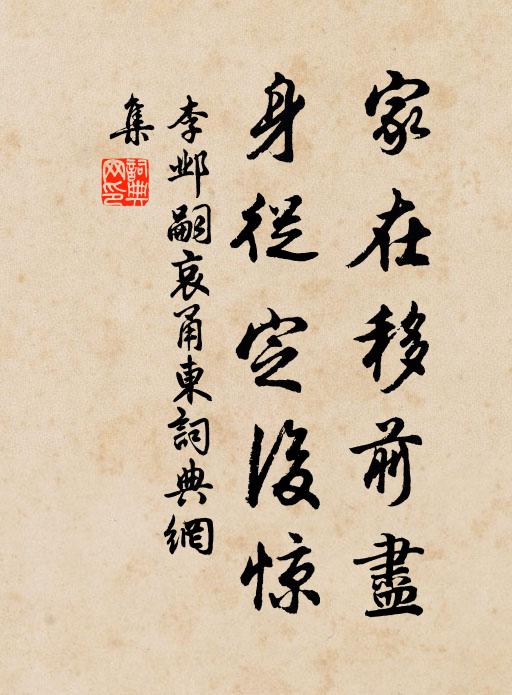 家在移前盡
身從定後惊
李邺嗣哀甬東詞典網
集
詞典网印